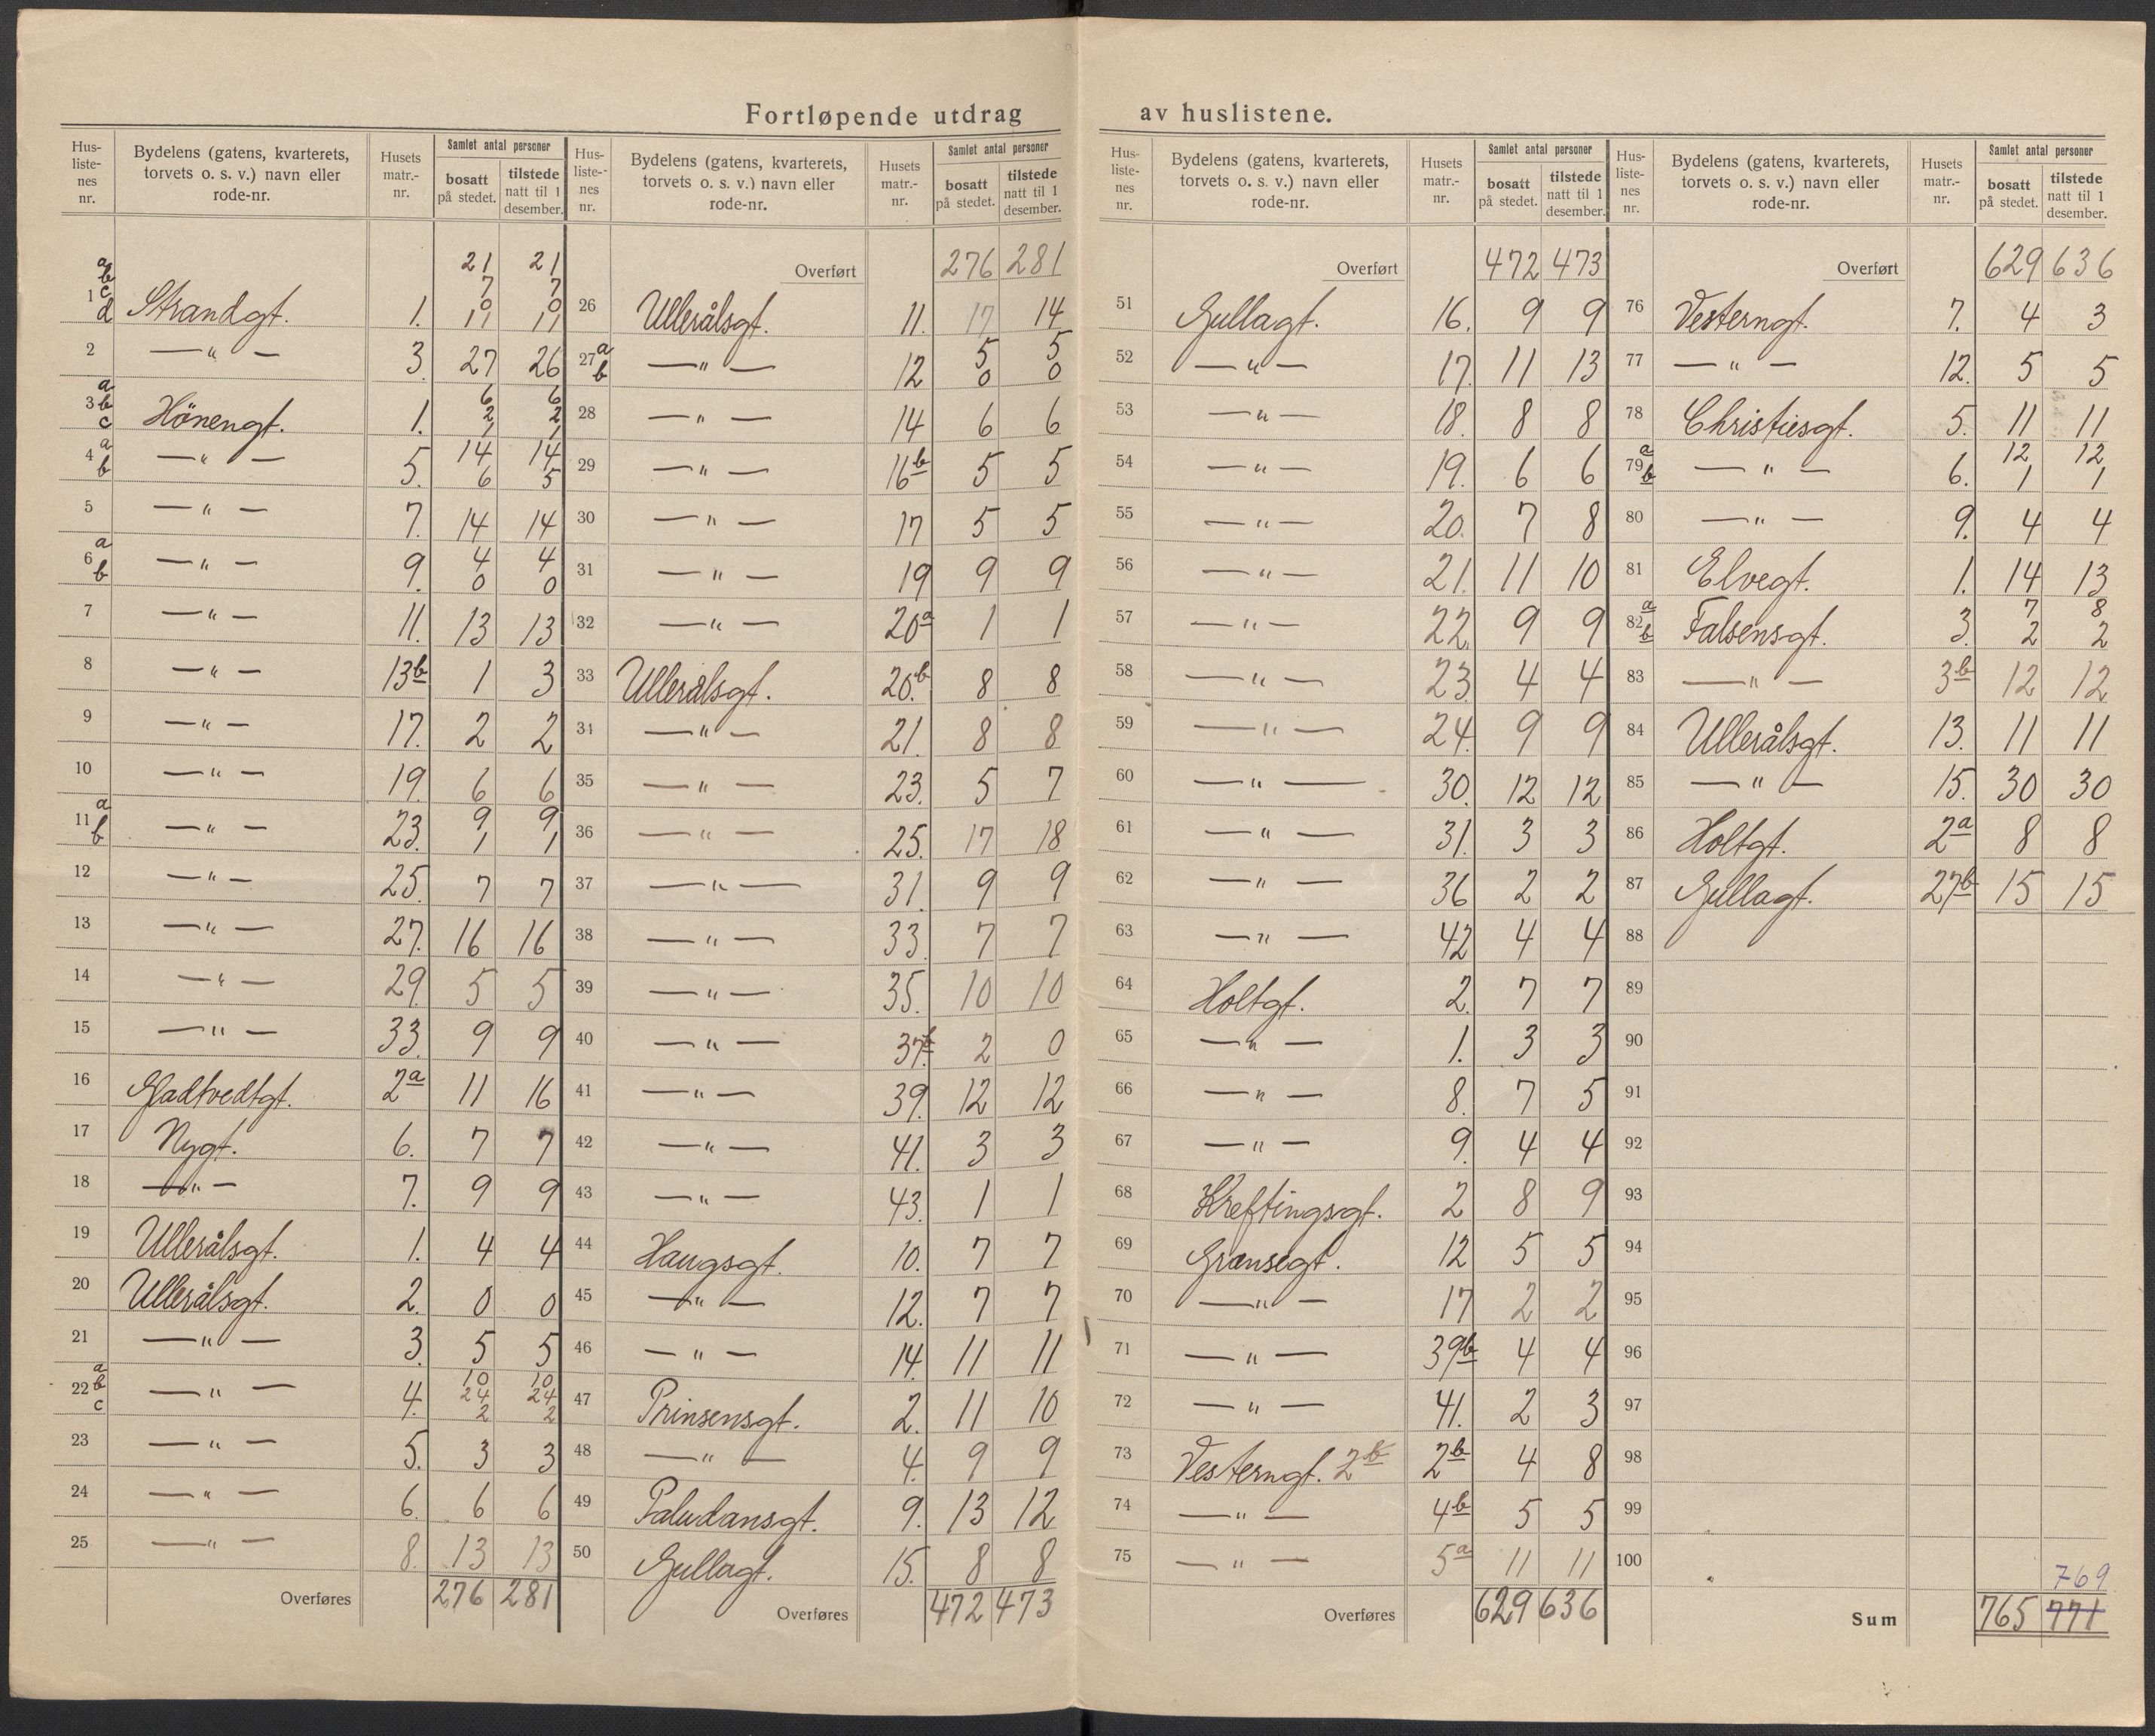 Fortløpende utdrag av huslistene.
Hus-liste-nes nr. | Bydelens (gatens, kvarterets, torvets o. s. v.) navn eller rode-nr. | Husets matr.-nr. | Samlet antal personer bosatt på stedet. | tilstede natt til 1 desember.
1 a b c d Strandgt. 1. 21 7 0 11 | 21 7 0 11
2 —"— 3. 27 26
3 a b c Hönengt. 1. 6 2 1 | 6 2 1
4 a b —"— 5. 14 6 | 14 5
5 —"— 7. 14 14
6 a b —"— 9. 4 0 | 4 0
7 —"— 11. 13 13
8 —"— 13b 1 3
9 —"— 17. 2 2
10 —"— 19. 6 6
11 a b —"— 23. 9 1 | 9 1
12 —"— 25. 7 7
13 —"— 27. 16 16
14 —"— 29. 5 5
15 —"— 33. 9 9
16 Gladtvedtgt. 2a 11 16
17 Nygt. 6. 7 7
18 —"— 7. 9 9
19 Ullerålsgt. 1. 4 4
20 Ullerålsgt. 2. 0 0
21 —"— 3. 5 5
22 a b c —"— 4. 10 24 2 | 10 24 2
23 —"— 5. 3 3
24 —"— 6. 6 6
25 —"— 8. 13 13
Overføres 276 281
Hus-liste-nes nr. | Bydelens (gatens, kvarterets, torvets o. s. v.) navn eller rode-nr. | Husets matr.-nr. | Samlet antal personer bosatt på stedet. | tilstede natt til 1 desember.
Overført 276 281
26 Ullerålsgt. 11. 17 14
27 a b —"— 12 5 0 | 5 0
28 —"— 14 6 6
29 —"— 16b 5 5
30 —"— 17 5 5
31 —"— 19 9 9
32 —"— 20a 1 1
33 Ullerålsgt. 20.b 8 8
34 —"— 21. 8 8
35 —"— 23. 5 7
36 —"— 25. 17 18
37 —"— 31. 9 9
38 —"— 33. 7 7
39 —"— 35. 10 10
40 —"— 37b 2 0
41 —"— 39. 12 12
42 —"— 41. 3 3
43 —"— 43. 1 1
44 Haugsgt. 10. 7 7
45 —"— 12. 7 7
46 —"— 14. 11 11
47 Prinsensgt. 2. 11 10
48 —"— 4. 9 9
49 Paludansgt. 9. 13 12
50 Gullagt. 15. 8 8
Overføres 472 473
Hus-liste-nes nr. | Bydelens (gatens, kvarterets, torvets o. s. v.) navn eller rode-nr. | Husets matr.-nr. | Samlet antal personer bosatt på stedet. | tilstede natt til 1 desember.
Overført 472 473
51 Gullagt. 16. 9 9
52 —"— 17. 11 13
53 —"— 18. 8 8
54 —"— 19. 6 6
55 —"— 20. 7 8
56 —"— 21. 11 10
57 —"— 22. 9 9
58 —"— 23 4 4
59 —"— 24. 9 9
60 —"— 30. 12 12
61 —"— 31. 3 3
62 —"— 36 2 2
63 —"— 42 4 4
64 Holtgt. 2. 7 7
65 —"— 1. 3 3
66 —"— 8. 7 5
67 —"— 9. 4 4
68 Kreftingsgt. 2 8 9
69 Grænsegt. 12 5 5
70 —"— 17 2 2
71 —"— 39b 4 4
72 —"— 41. 2 3
73 Vesterngt. 2b 2b 4 8
74 —"— 4b 5 5
75 —"— 5a 11 11
Overføres 629 636
Hus-liste-nes nr. | Bydelens (gatens, kvarterets, torvets o. s. v.) navn eller rode-nr. | Husets matr.-nr. | Samlet antal personer bosatt på stedet. | tilstede natt til 1 desember.
Overført 629 636
76 Vesterngt. 7. 4 3
77 —"— 12. 5 5
78 Christiesgt. 5. 11 11
79 a b —"— 6. 12 1 | 12 1
80 —"— 9. 4 4
81 Elvegt. 1. 14 13
82 a b Falsensgt. 3. 7 2 | 8 2
83 —"— 3b 12 12
84 Ullerålsgt. 13. 11 11
85 —"— 15. 30 30
86 Holtgt. 2a 8 8
87 Gullagt. 27b 15 15
88
89
90
91
92
93
94
95
96
97
98
99
100
769
Sum 765 771